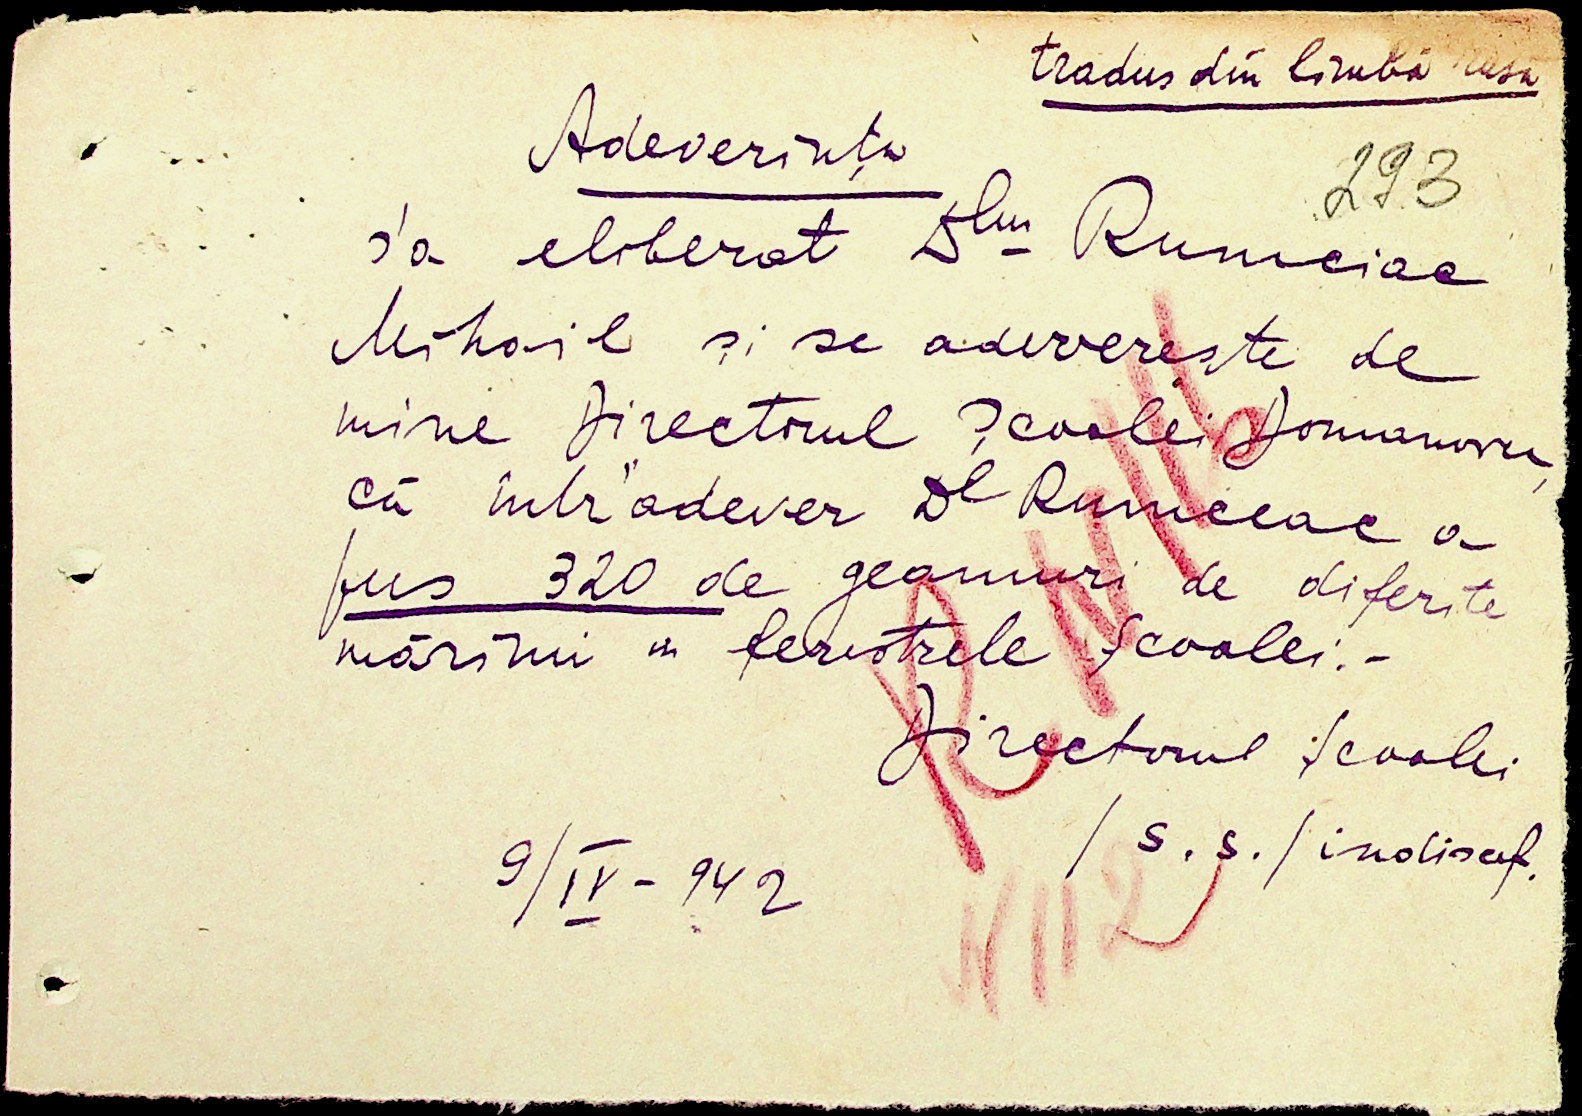 tradus din limba rusă
Adeverința
293
s'a eliberat Dlui Rumeiac
Mihail și se adeverește de
mine Directorul Școalei Domanovca,
că într'adever Dl Rumeeac a
pus 320 de geamuri de diferite
mărimi în ferestrele școalei.-
Directorul școalei
/s.s./indiscf.
9/IV-942
N 112